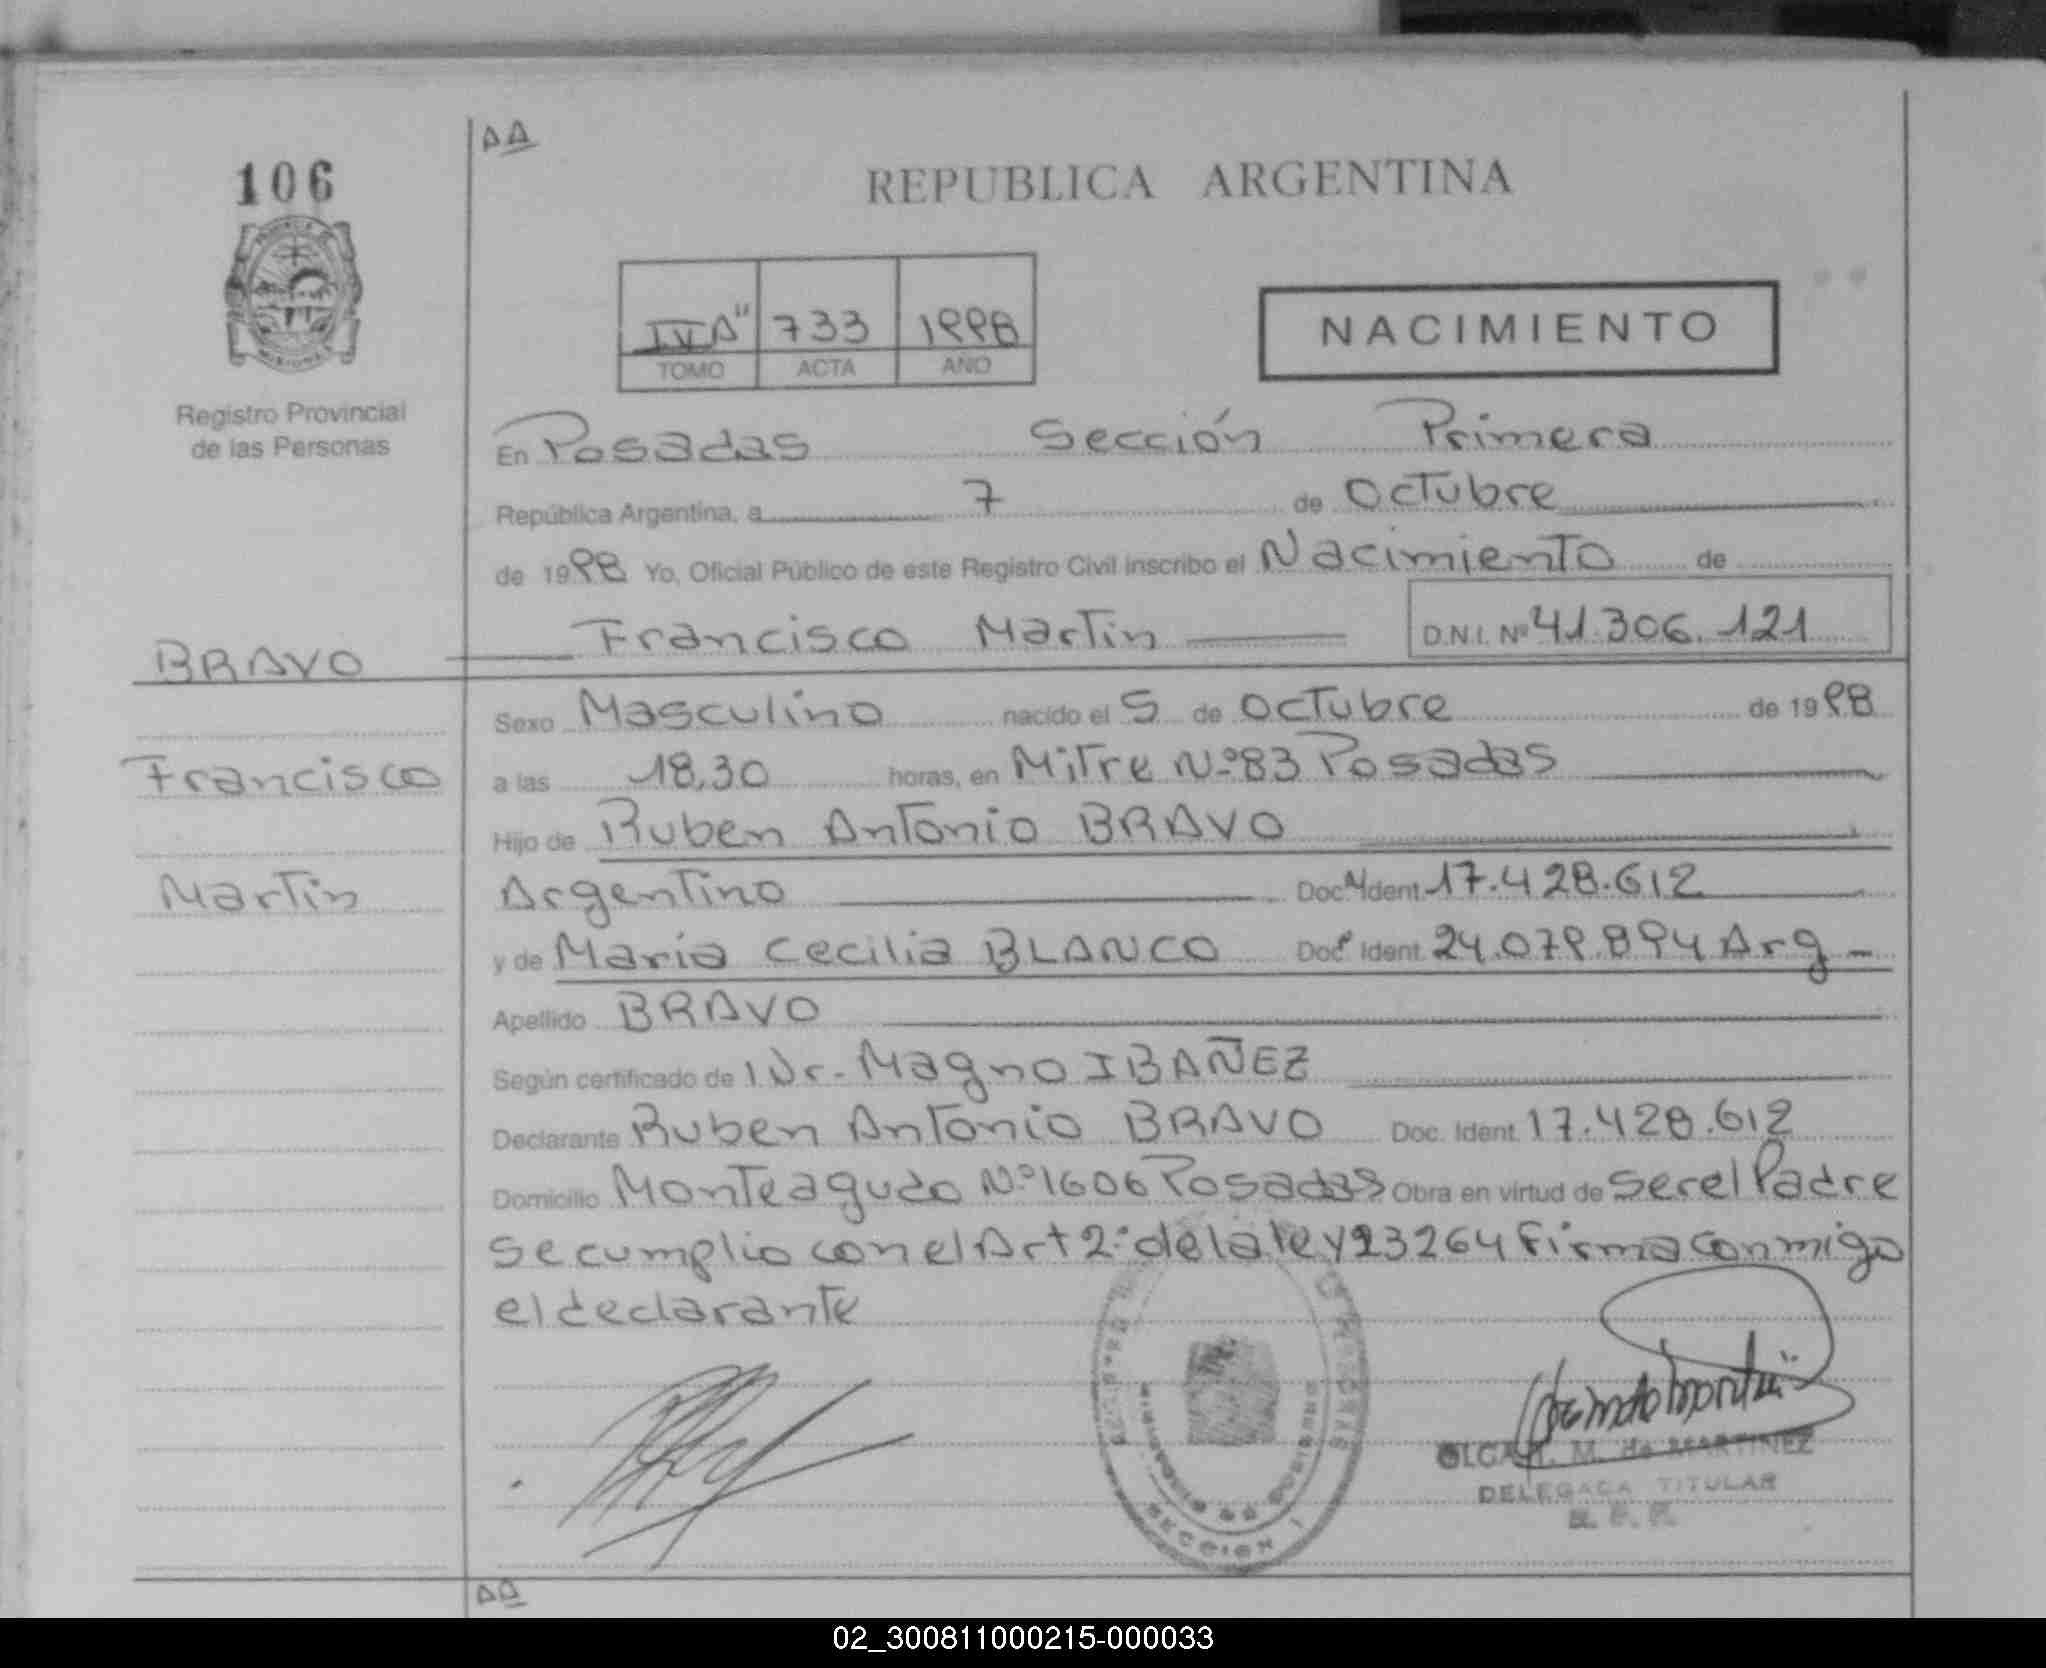 ΔΔ
106
REPUBLICA ARGENTINA
IV A" 733 1998
TOMO ACTA AÑO
NACIMIENTO
Registro Provincial
de las Personas
En Posadas Sección Primera
República Argentina, a 7 de Octubre
de 1998 Yo, Oficial Público de este Registro Civil inscribo el Nacimiento de
Francisco Martin D.N.I. Nº 41.306.121
BRAVO
Sexo Masculino nacido el 5 de Octubre de 1998
Francisco
a las 18,30 horas, en Mitre Nº 83 Posadas
Hijo de Ruben Antonio BRAVO
Martin
Argentino Doc. Ident. 17.428.612
y de Maria Cecilia BLANCO Doc. Ident. 24.079.894 Arg
Apellido BRAVO
Según certificado de 1 Dr. Magno IBAÑEZ
Declarante Ruben Antonio BRAVO Doc. Ident. 17.428.612
Domicilio Monteagudo Nº 1606 Posadas Obra en virtud de ser el Padre
se cumplio con el Art 2º de la ley 23264 Firma conmigo
el declarante
SECCION 1
M. de MARTINEZ
DELEGADA TITULAR
ΔΔ
02_300811000215-000033